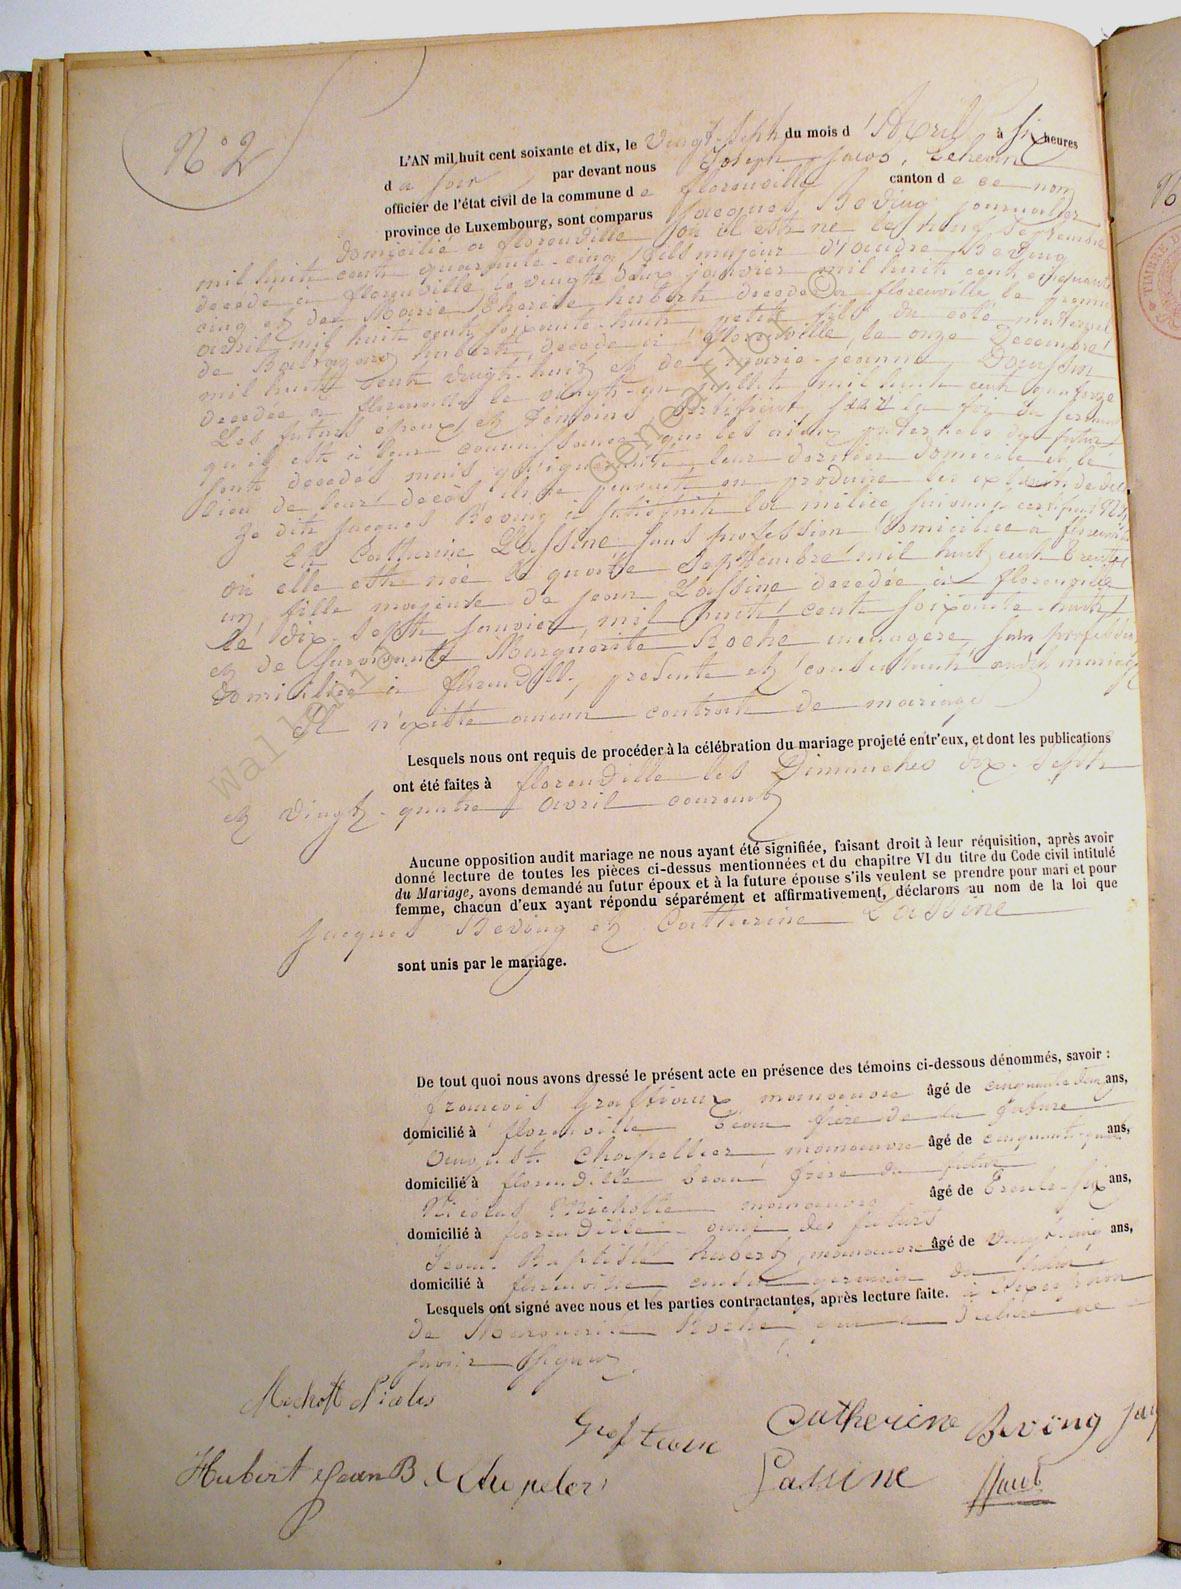 N° 2
L'AN mil huit cent soixante et dix, le vingt-septh du mois d'Avril à six heures
d u soir par devant nous Joseph Jacob, Echevin
officier de l'état civil de la commune d e florenville canton d e ce nom
province de Luxembourg, sont comparus Jacques Beving journalier
domicilié à florenville où il est né le Septembre
mil huit cents quarante-cinq, fils majeur d'andré Beving
décédé à florenville le vingt deux janvier mil huit cent cinquante
cinq et de Marie Thérèse hubert décédée à florenville le premier
avril mil huit cent soixante-huit, petit fils du coté maternel
de hubert, décédé à florenville, le onze Decembre
mil huit cent vingt-huit et de marie-jeanne
décédée à florenville le vingt-un juillet mil huit cent quatorze
Les futurs epoux et témoins certifient, sur la foi du serment
qu'il est à leur connaissance que les aieux paternels du futur
sont décédés mais qu'ignorant leur dernier domicile et le
lieu de leur décès ils ne peuvent en produire les extraits de décès
Le dit Jacques Beving a satisfait la milice suivant certificat
Et Catherine Lassine sans profession domiciliée à florenville
où elle est née le quatre Septembre mil huit cent trente
un, fille majeure de jean Lassine décédé à florenville
le dix-septh janvier mil huit cent soixante-huit
et de survivante Marguerite Roche ménagère, sans profession
domiciliée à florenville, présente et consentante audit mariage
Il n'existe aucun contrat de mariage
Lesquels nous ont requis de procéder à la célébration du mariage projeté entr'eux, et dont les publications
ont été faites à florenville les Dimanches dix-septh
et vingt-quatre avril courant
Aucune opposition audit mariage ne nous ayant été signifiée, faisant droit à leur réquisition, après avoir
donné lecture de toutes les pièces ci-dessus mentionnées et du chapitre VI du titre du Code civil intitulé
du Mariage, avons demandé au futur époux et à la future épouse s'ils veulent se prendre pour mari et pour
femme, chacun d'eux ayant répondu séparément et affirmativement, déclarons au nom de la loi que
Jacques Beving et Catherine Lassine
sont unis par le mariage.
De tout quoi nous avons dressé le présent acte en présence des témoins ci-dessous dénommés, savoir :
françois Graftiaux, manoeuvre âgé de ans,
domicilié à florenville beau frère de la future
August Chapellier, manoeuvre âgé de ans,
domicilié à florenville beau frère du futur
Nicolas Michotte manoeuvre âgé de trente-six ans,
domicilié à florenville ami des futurs
Jean Baptiste hubert, manoeuvre âgé de vingt-cinq ans,
domicilié à florenville cousin germain du futur
Lesquels ont signé avec nous et les parties contractantes, après lecture faite. à l'exception
de Marguerite Roche qui a déclaré ne
savoir signer
Nicolas
Catherine Beving
Hubert jean B. Lassine
Jacob
Wallonie
GeneaFlor ©